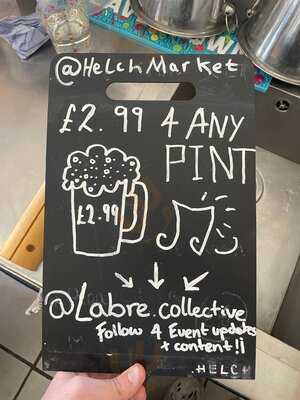 @HelchMarket
£2.99 4 ANY
PINT
£2.99
@Labre.collective
Follow 4 Event updates
+ content!!
.HELCH